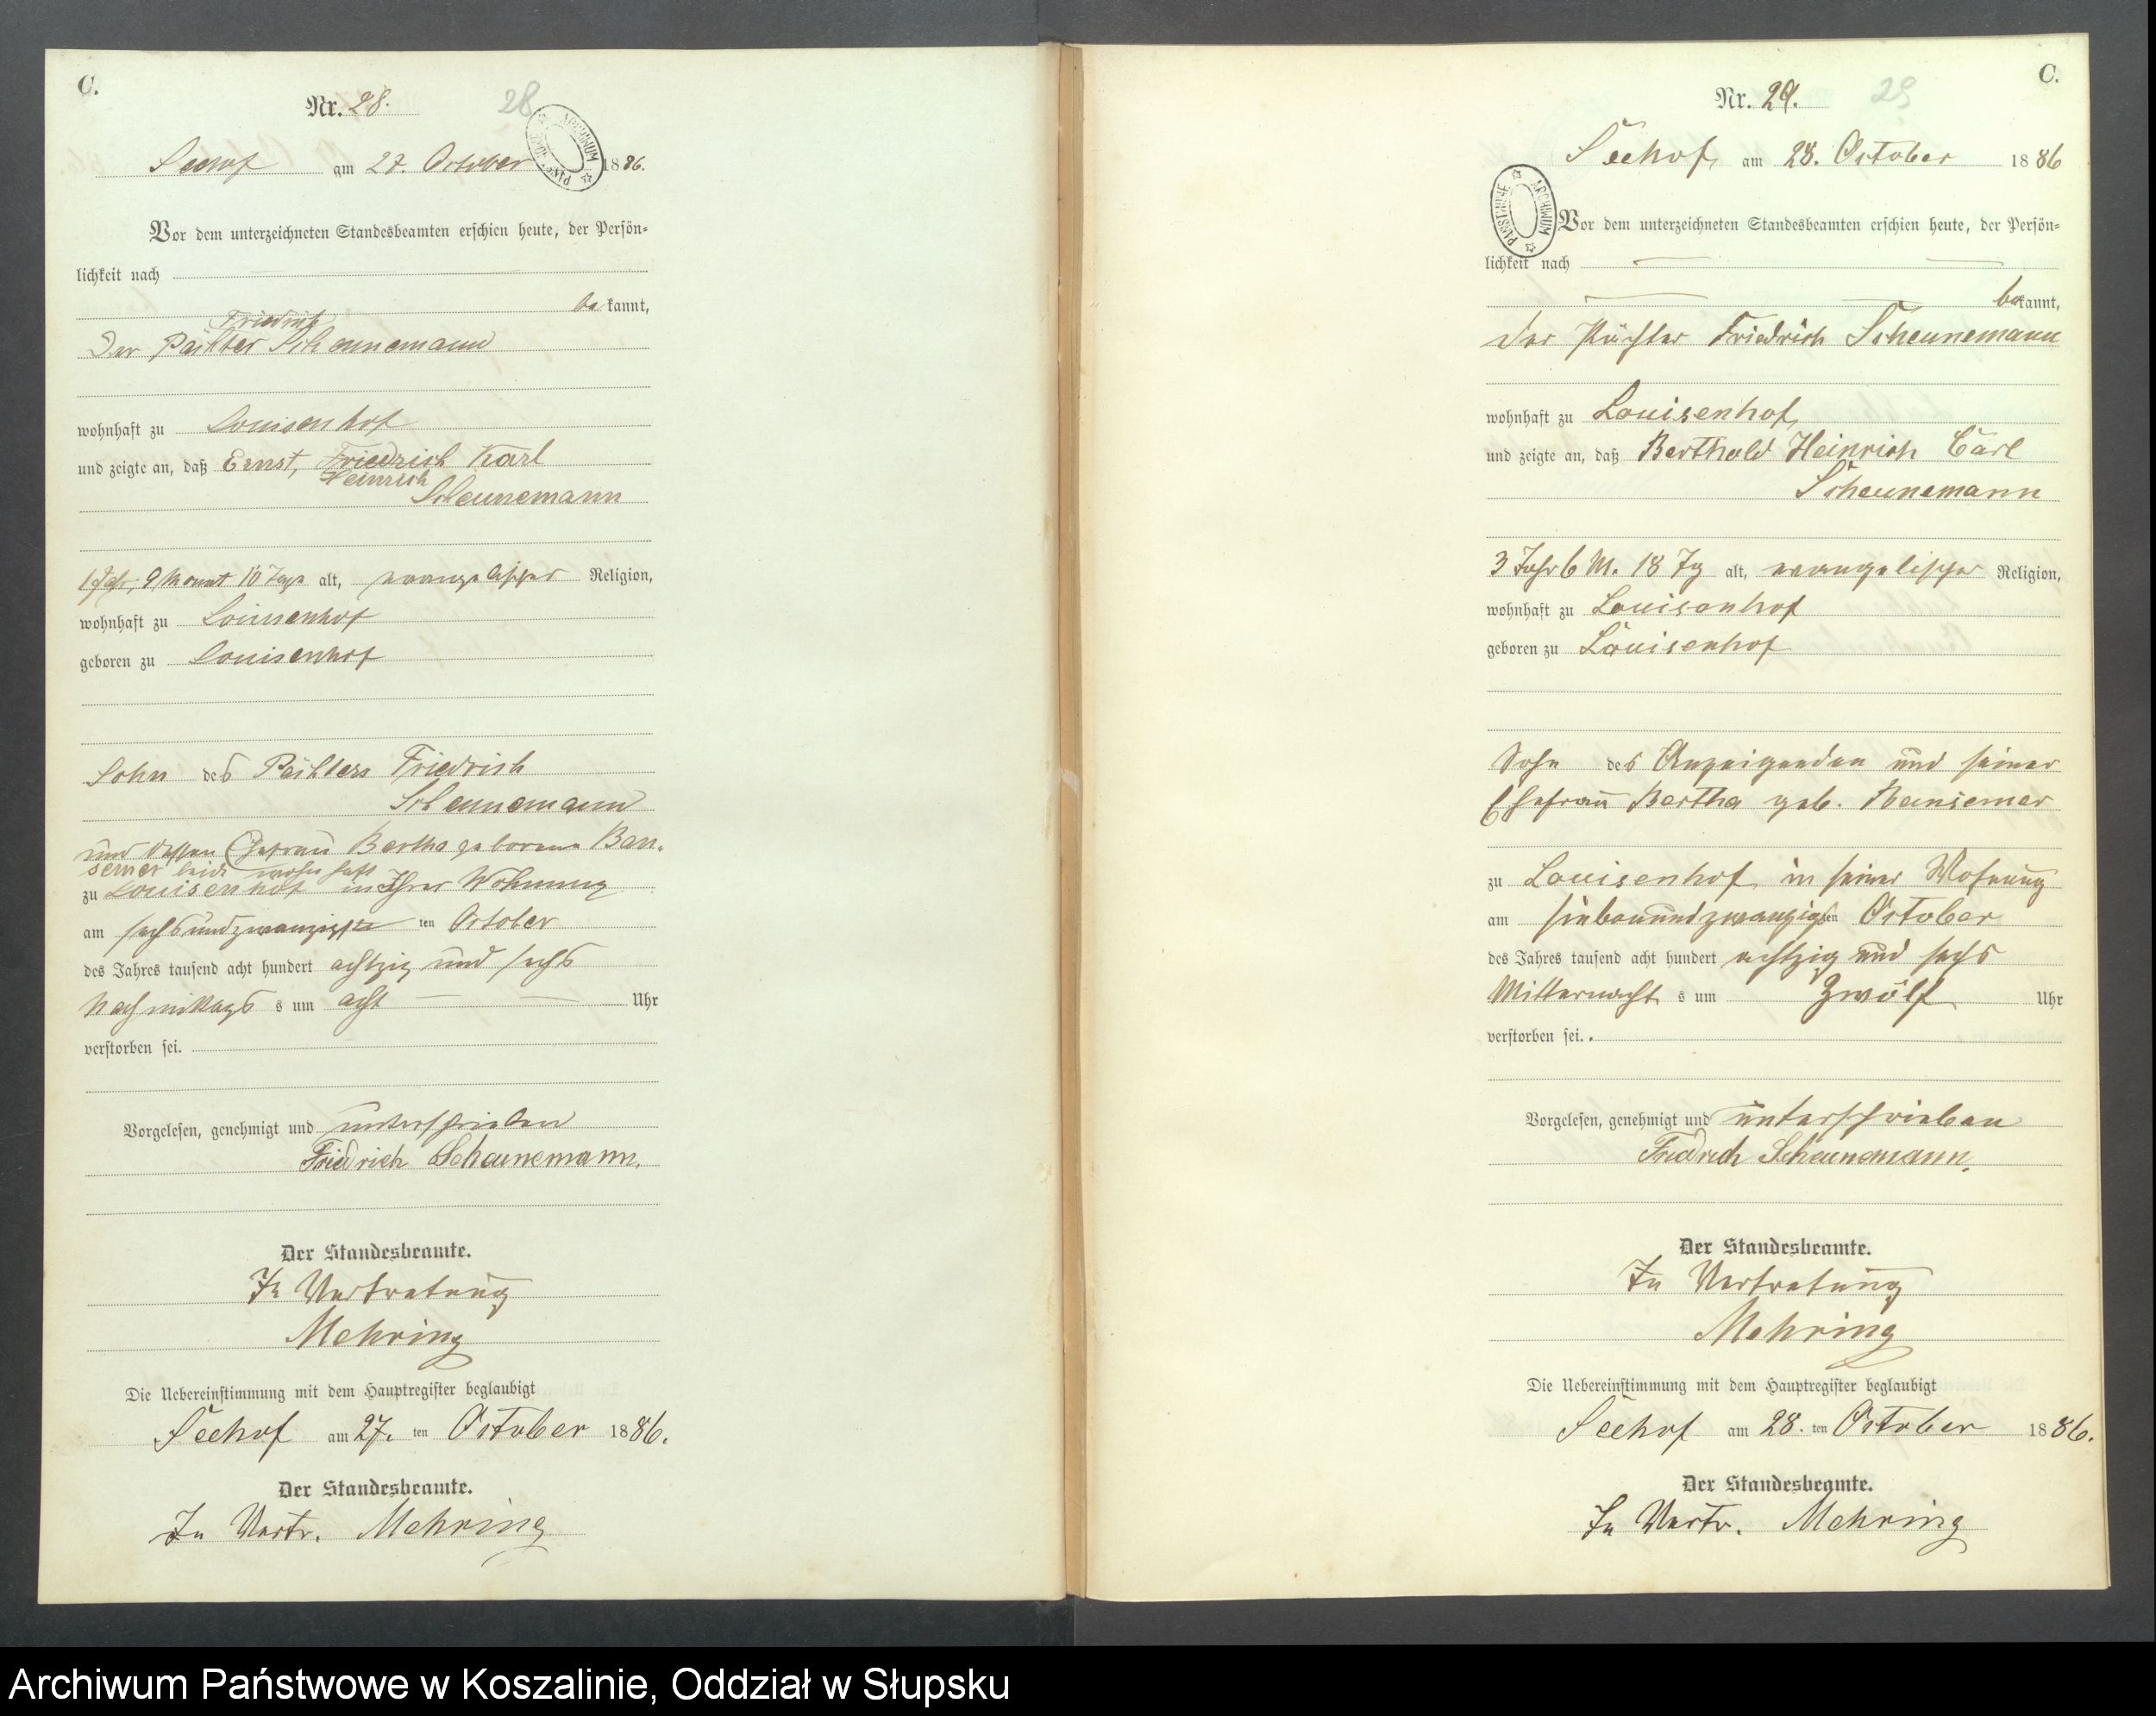 C.
Nr. 28.
28
Seehof am 27. October 1886.
Vor dem unterzeichneten Standesbeamten erschien heute, der Persön-
lichkeit nach
be kannt,
Friedrich
Der Pächter Scheunemann
wohnhaft zu Louisenhof
und zeigte an, daß Ernst, Friedrich Karl
Heinrich
Scheunemann
1 Jahr, 9 Monat 10 Tage alt, evangelischer Religion,
wohnhaft zu Louisenhof
geboren zu Louisenhof
Sohn des Pächters Friedrich
Scheunemann
und dessen Ehefrau Bertha geborene Ban-
semer beide wohnhaft
zu Louisenhof in Ihrer Wohnung
am sechsundzwanzigsten ten October
des Jahres tausend acht hundert achtzig und sechs
Nachmittags s um acht Uhr
verstorben sei.
Vorgelesen, genehmigt und unterschrieben
Friedrich Scheunemann.
Der Standesbeamte.
In Vertretung
Mehring
Die Uebereinstimmung mit dem Hauptregister beglaubigt
Seehof am 27. ten October 1886.
Der Standesbeamte.
In Vertr. Mehring
C.
Nr. 29.
29
Seehof, am 28. October 1886
PAŃSTWOWE ARCHIWUM
Vor dem unterzeichneten Standesbeamten erschien heute, der Persön-
lichkeit nach
bekannt,
der Pächter Friedrich Scheunemann
wohnhaft zu Louisenhof,
und zeigte an, daß Berthold Heinrich Carl
Scheunemann
3 Jahr 6 M. 18 Tg alt, evangelischer Religion,
wohnhaft zu Louisenhof
geboren zu Louisenhof
Sohn des Anzeigenden und seiner
Ehefrau Bertha geb. Bansemer
zu Louisenhof in seiner Wohnung
am siebenundzwanzigsten October
des Jahres tausend acht hundert achtzig und sechs
Mitternacht s um Zwölf Uhr
verstorben sei.
Vorgelesen, genehmigt und unterschrieben
Friedrich Scheunemann.
Der Standesbeamte.
In Vertretung
Mehring
Die Uebereinstimmung mit dem Hauptregister beglaubigt
Seehof am 28. ten October 1886.
Der Standesbeamte.
In Vertr. Mehring
Archiwum Państwowe w Koszalinie, Oddział w Słupsku